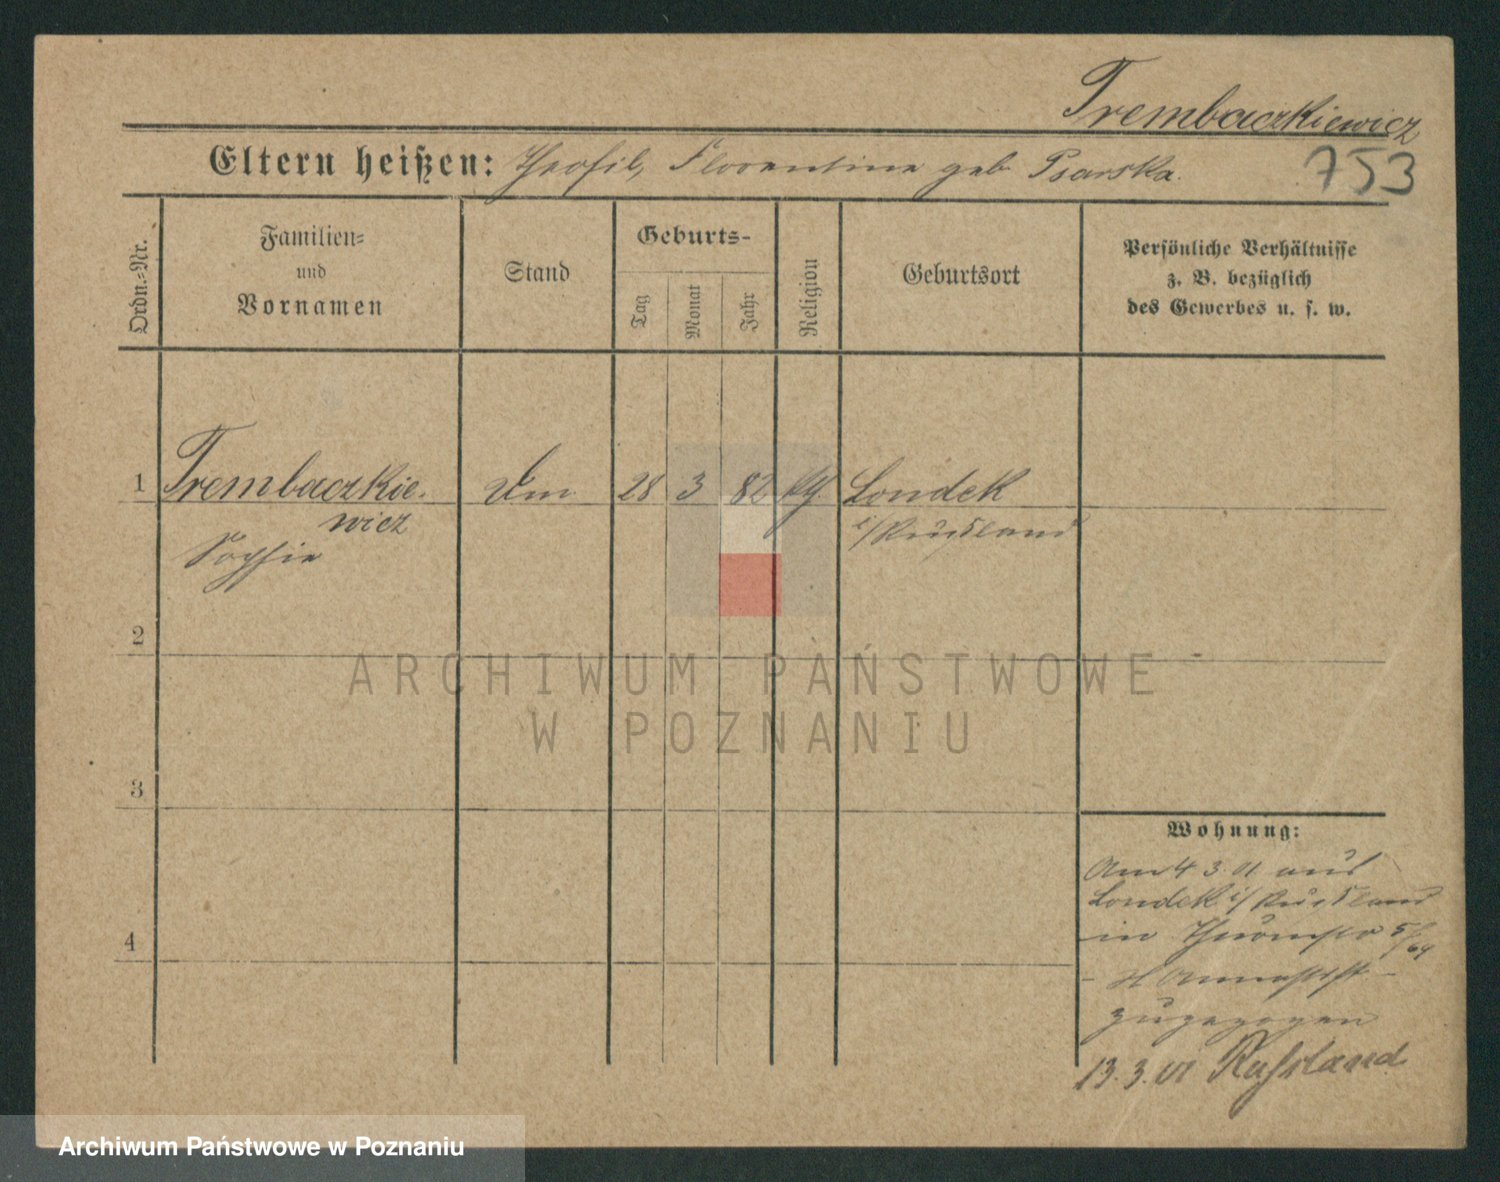 Trembaczkiewicz
Eltern heißen: Theofil, Florentine geb Psarska.
753
Ordn.-Nr.
Familien-
und
Vornamen
Stand
Geburts-
Tag
Monat
Jahr
Religion
Geburtsort
Persönliche Verhältnisse
z. B. bezüglich
des Gewerbes u. s. w.
1
Trembaczkie-
wicz
Sophie
28
3
82
Londek
i/Rußland
2
3
4
ARCHIWUM PAŃSTWOWE
W POZNANIU
Wohnung:
Am 4 3.01 aus
Londek i/Rußland
in
zugezogen
13.3.01 Russland
Archiwum Państwowe w Poznaniu